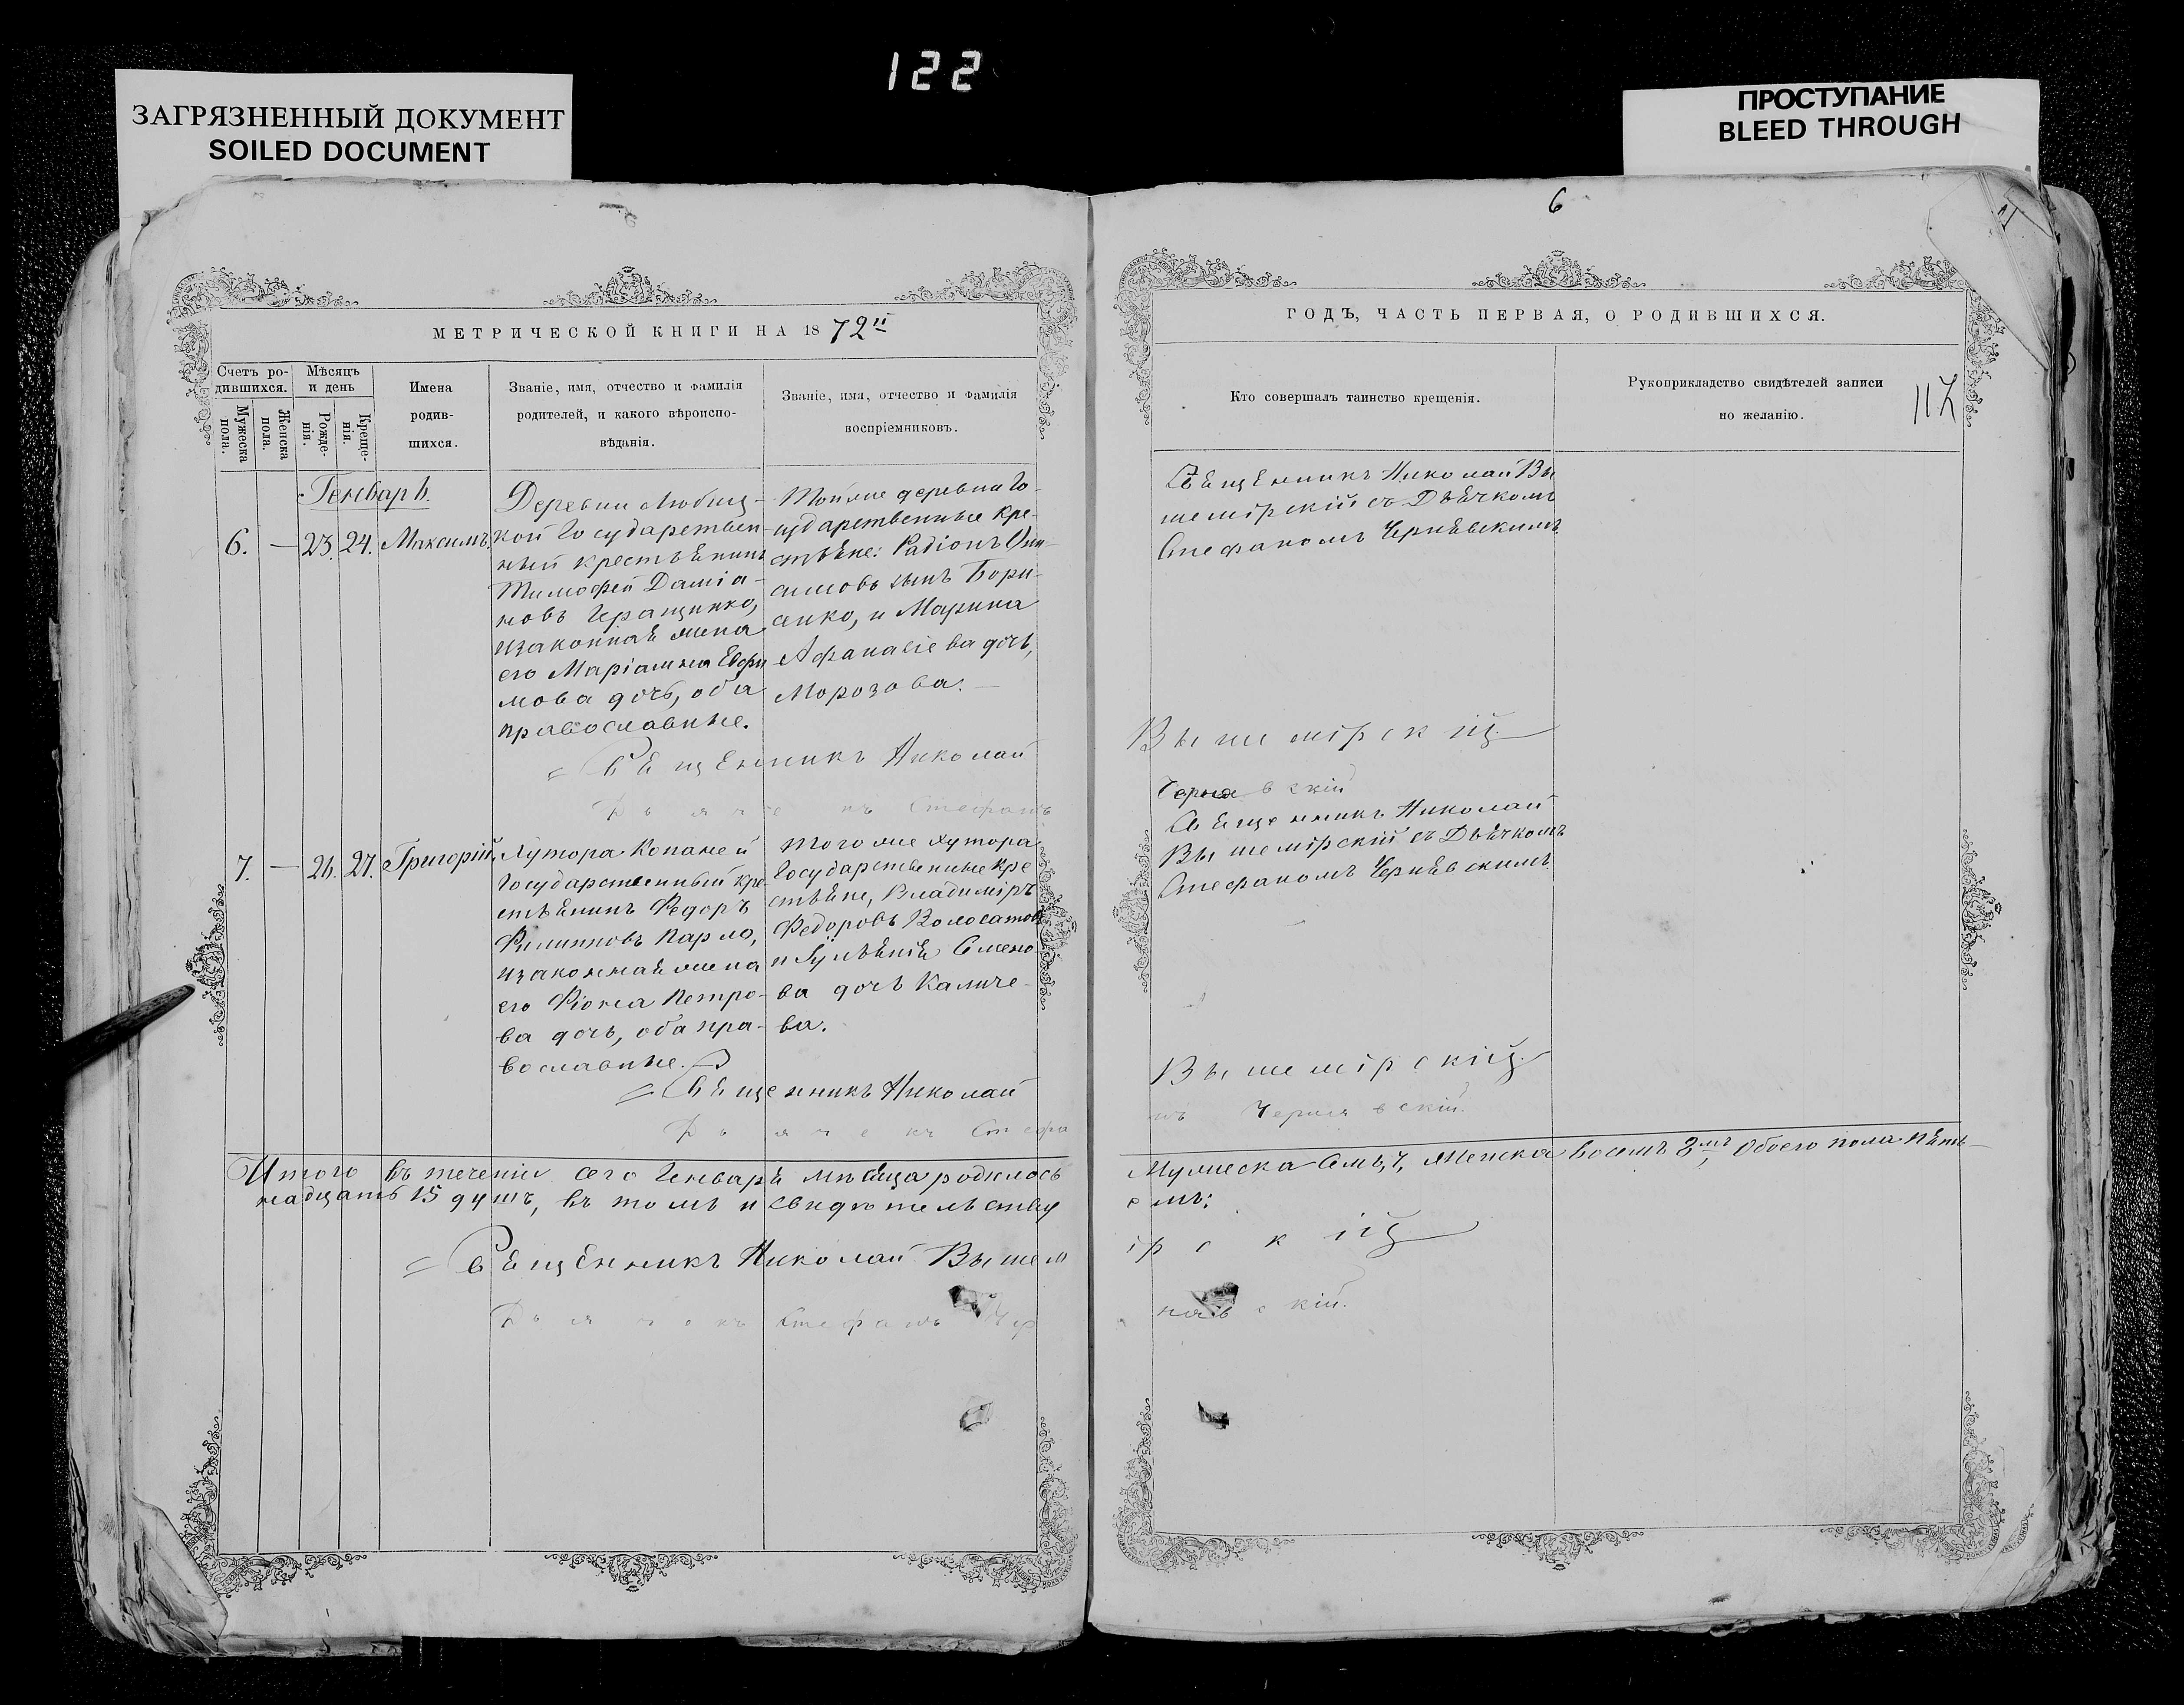 122
ЗАГРЯЗНЕННЫЙ ДОКУМЕНТ
SOILED DOCUMENT
ПРОСТУПАНИЕ
BLEED THROUGH
МЕТРИЧЕСКОЙ КНИГИ НА 1872
Счетъ ро-
дившихся.
Мужеска
пола.
Женска
пола.
Мѣсяцъ
и день
Рожде-
нія.
Креще-
нія.
Имена
родив-
шихся.
Званіе, имя, отчество и фамилія
родителей, и какого вѣроиспо-
вѣданія.
Званіе, имя, отчество и фамилія
воспріемниковъ.
Генварь.
6. — 23. 24. Максимъ.
Деревни Любиц-
кой Государствен-
ный крестьянинъ
Тимофей Даміа-
новъ Геращенко,
изаконная жена
его Маріамна Евфи
мова дочь, оба
православные.
Тойже деревни Го-
сударственные кре-
стьяне: Радіонъ
симовъ сынъ Бори-
сенко, и Марина
Афанасіева дочь,
Морозова.
Священникъ Николай
Дьячекъ Стефанъ
7. — 26. 27. Григорій.
Хутора Копаней
Государственный кре
стьянинъ Федоръ
Филипповъ Карло,
изаконная жена
его Фіокла Петро-
ва дочь, оба пра-
вославные.
Того же хутора
Государственные кре
стьяне, Владиміръ
Федоровъ Волосатовъ
и Іуліанія Семено
ва дочь Каличе-
ва.
Священникъ Николай
Дьячекъ Стефа
Итого въ теченіи сего Генваря мѣсяца родилось
надцать 15 душъ, въ томъ и свидѣтельству
Священникъ Николай Вышем
Дьячекъ Стефанъ Чер
6
ГОДЪ, ЧАСТЬ ПЕРВАЯ, О РОДИВШИХСЯ.
Кто совершалъ таинство крещенія.
Рукоприкладство свидѣтелей записи
по желанію.
117
Священникъ Николай Вы
шемірскій съ Дьячкомъ
Стефаномъ Чернявскимъ.
Вышемірскій.
Чернявскій
Священникъ Николай
Вышемірскій съ Дьячкомъ
Стефаномъ Чернявскимъ.
Вышемірскій.
нъ Чернявскій.
Мужеска Семь, 7, Женска восемъ 8мъ, Обоего пола пять-
емъ:
ірскій
нявскій.